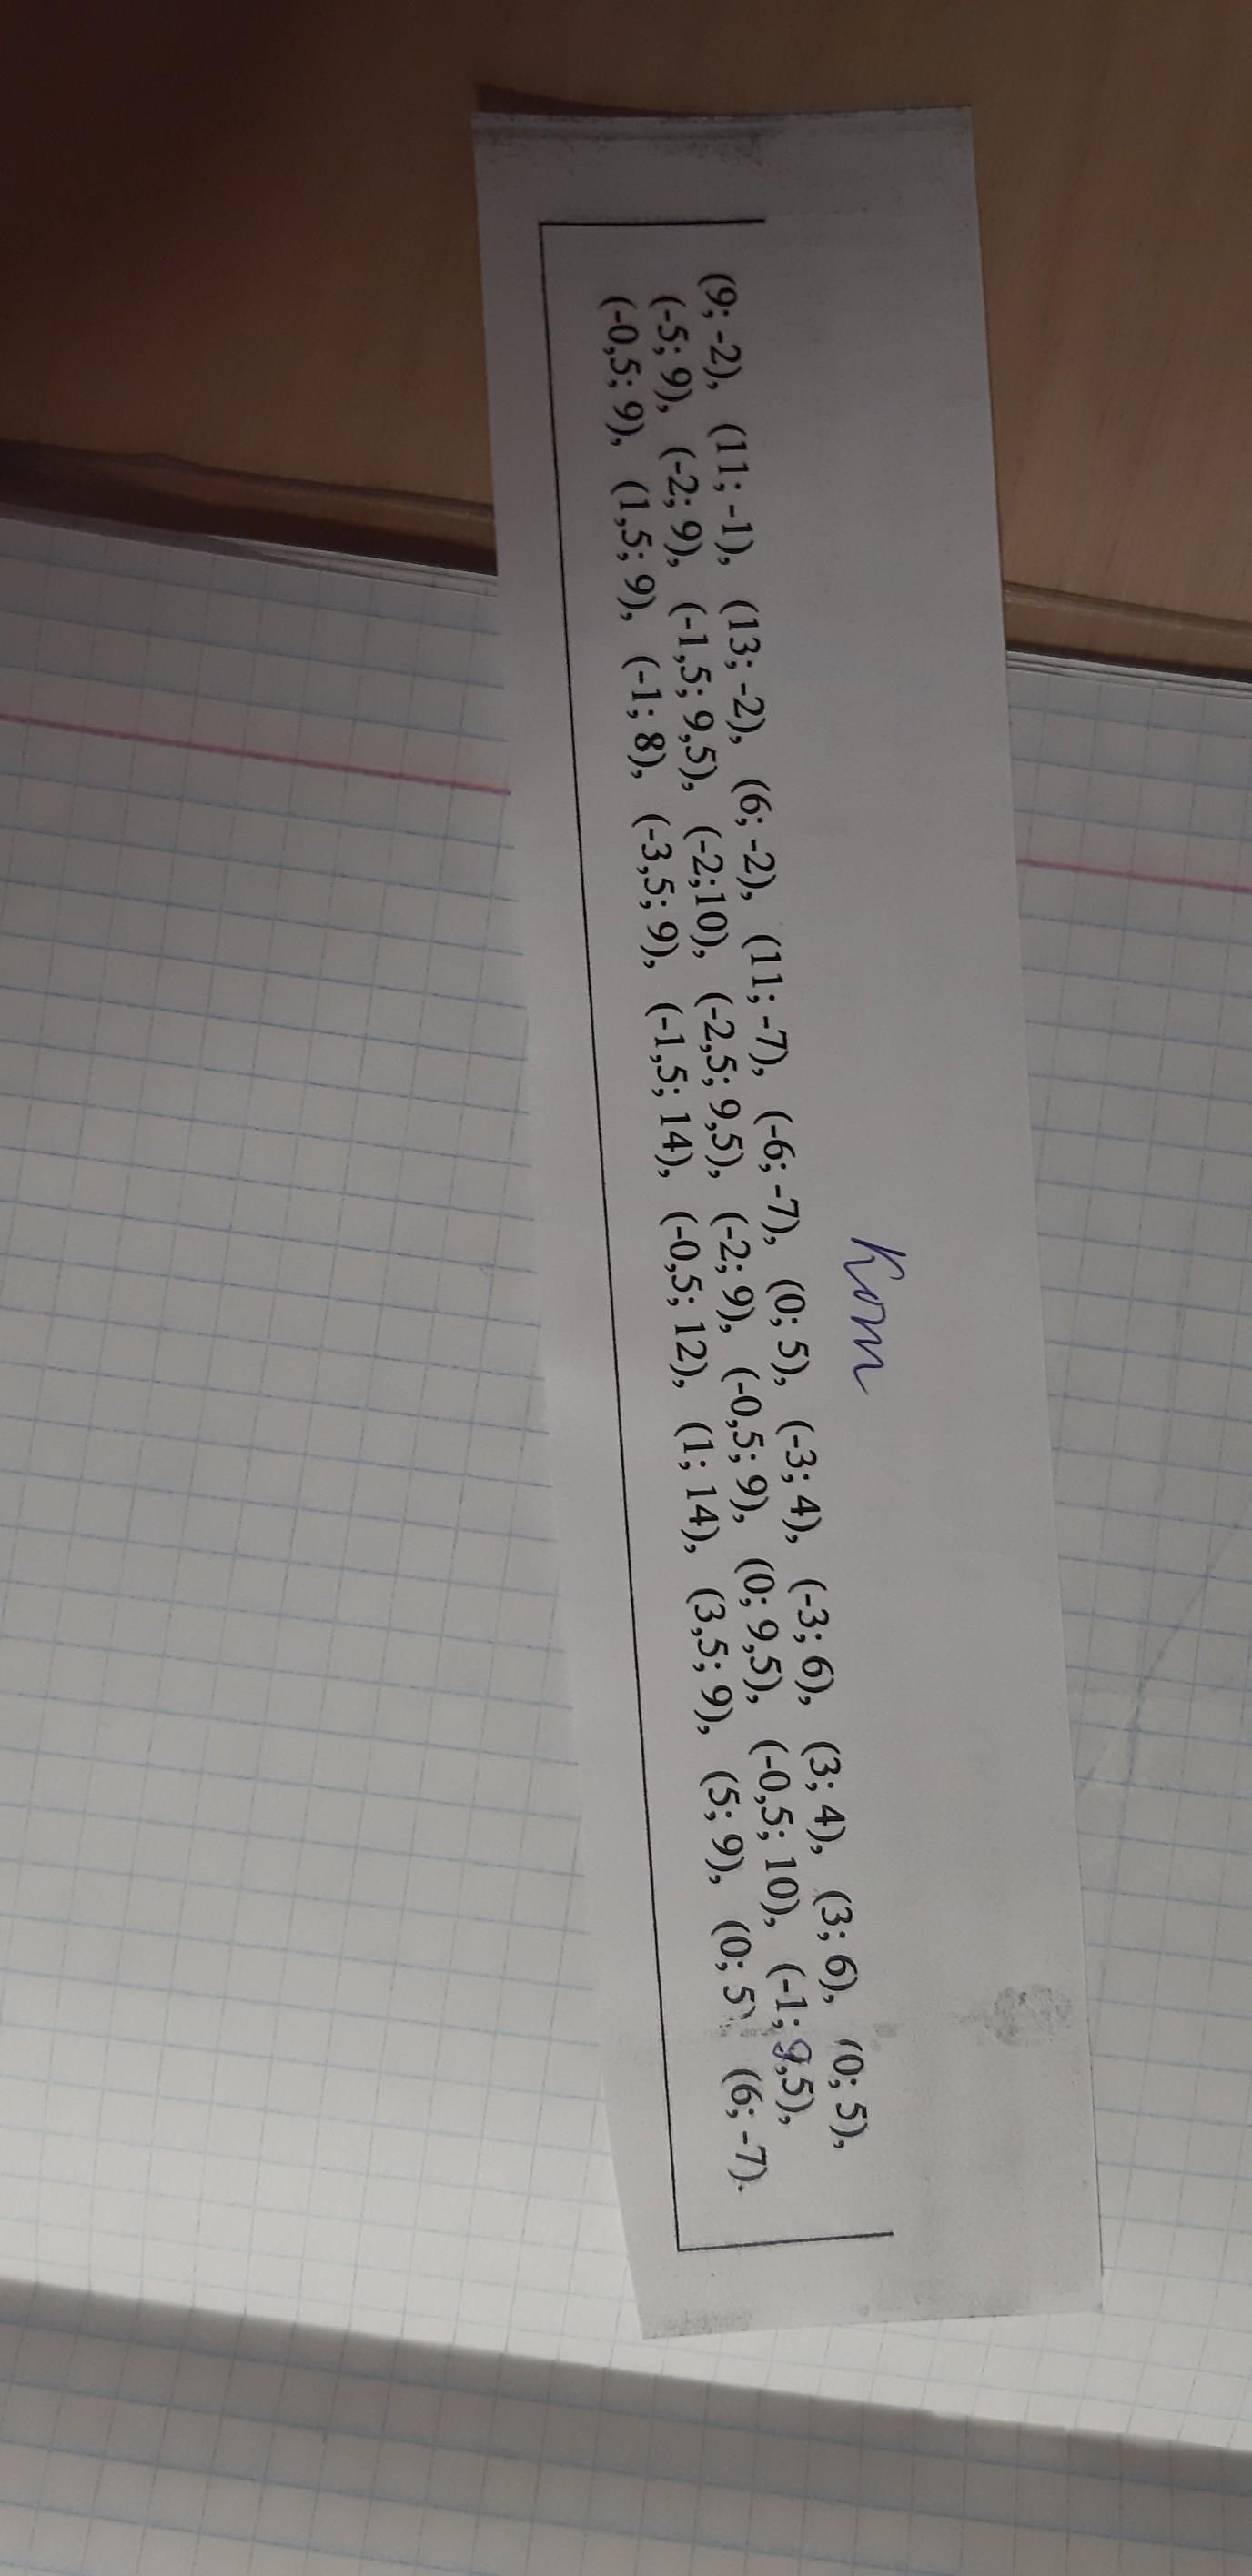 Кот
(9; -2), (11; -1), (13; -2), (6; -2), (11; -7), (-6; -7), (0; 5), (-3; 4), (-3; 6), (3; 4), (3; 6), (0; 5),
(-5; 9), (-2; 9), (-1,5; 9,5), (-2;10), (-2,5; 9,5), (-2; 9), (-0,5; 9), (0; 9,5), (-0,5; 10), (-1; 9,5),
(-0,5; 9), (1,5; 9), (-1; 8), (-3,5; 9), (-1,5; 14), (-0,5; 12), (1; 14), (3,5; 9), (5; 9), (0; 5) (6; -7).